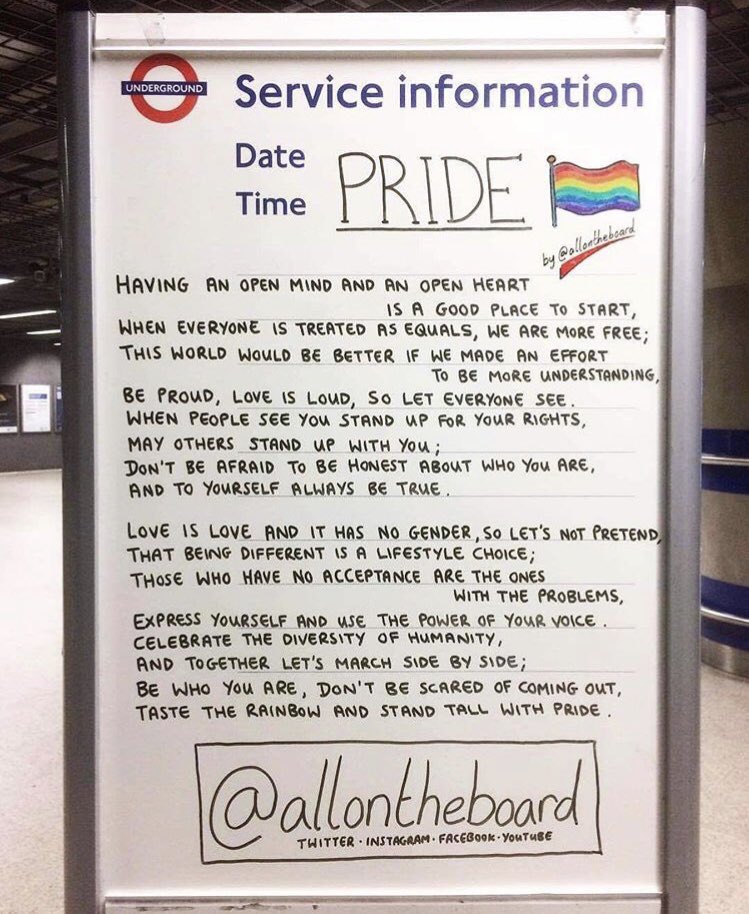 UNDERGROUND
Service information
Date
Time
PRIDE
by @allontheboard
HAVING AN OPEN MIND AND AN OPEN HEART
IS A GOOD PLACE TO START,
WHEN EVERYONE IS TREATED AS EQUALS, WE ARE MORE FREE;
THIS WORLD WOULD BE BETTER IF WE MADE AN EFFORT
TO BE MORE UNDERSTANDING,
BE PROUD, LOVE IS LOUD, SO LET EVERYONE SEE.
WHEN PEOPLE SEE YOU STAND UP FOR YOUR RIGHTS,
MAY OTHERS STAND UP WITH YOU;
DON'T BE AFRAID TO BE HONEST ABOUT WHO YOU ARE,
AND TO YOURSELF ALWAYS BE TRUE.
LOVE IS LOVE AND IT HAS NO GENDER, SO LET'S NOT PRETEND,
THAT BEING DIFFERENT IS A LIFESTYLE CHOICE;
THOSE WHO HAVE NO ACCEPTANCE ARE THE ONES
WITH THE PROBLEMS,
EXPRESS YOURSELF AND USE THE POWER OF YOUR VOICE.
CELEBRATE THE DIVERSITY OF HUMANITY,
AND TOGETHER LET'S MARCH SIDE BY SIDE;
BE WHO YOU ARE, DON'T BE SCARED OF COMING OUT,
TASTE THE RAINBOW AND STAND TALL WITH PRIDE.
@allontheboard
TWITTER · INSTAGRAM · FACEBOOK · YOUTUBE